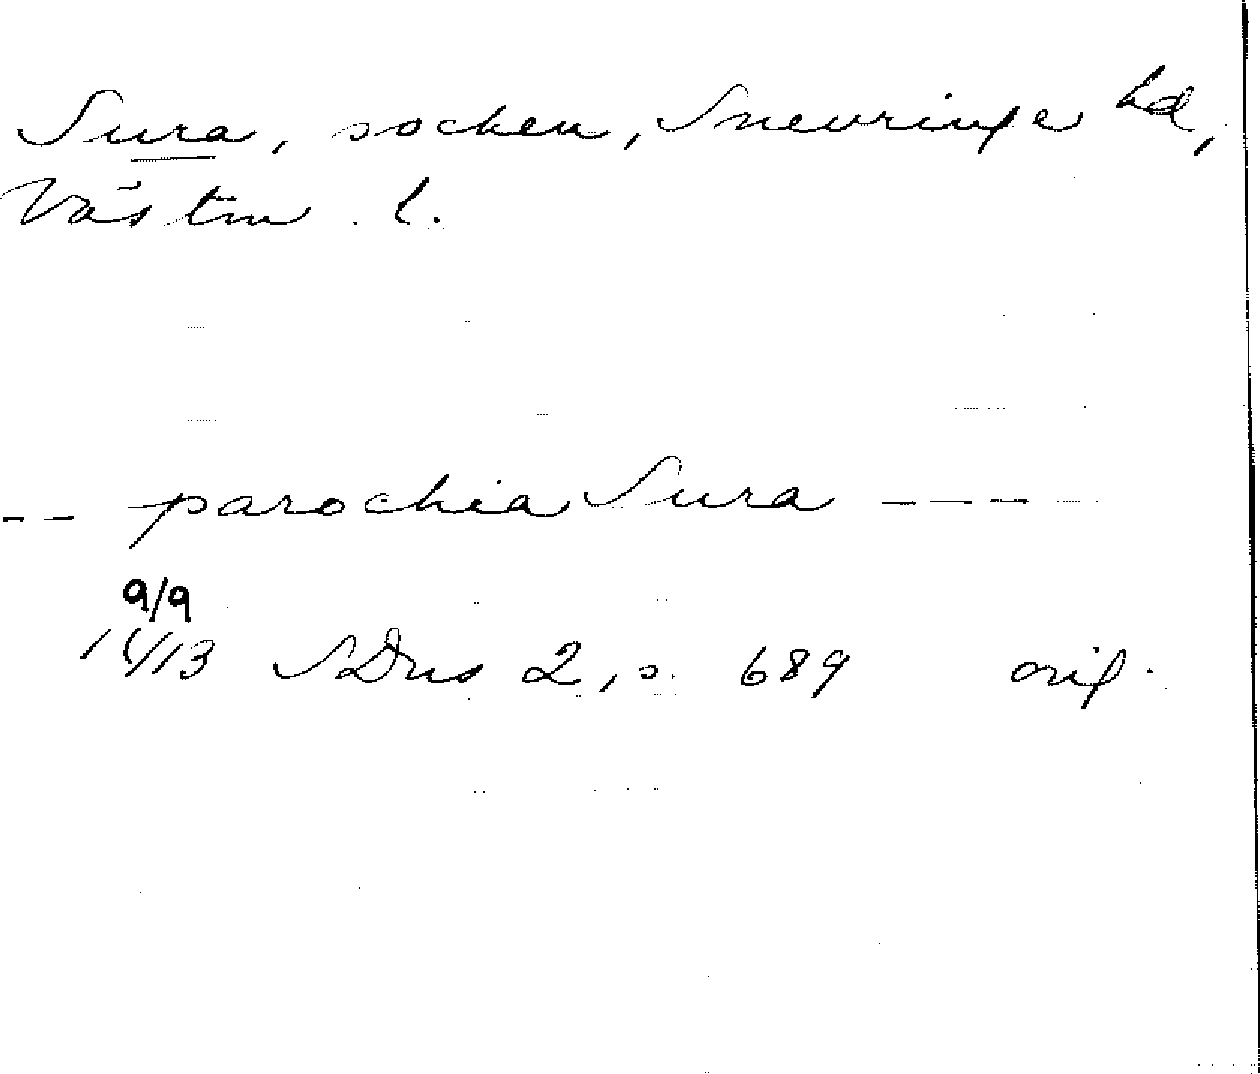 Sura, socken, Snevringe hd,
Västm. l.
-- parochia Sura -----
9/9
1413 SDns 2, s. 689 orig.